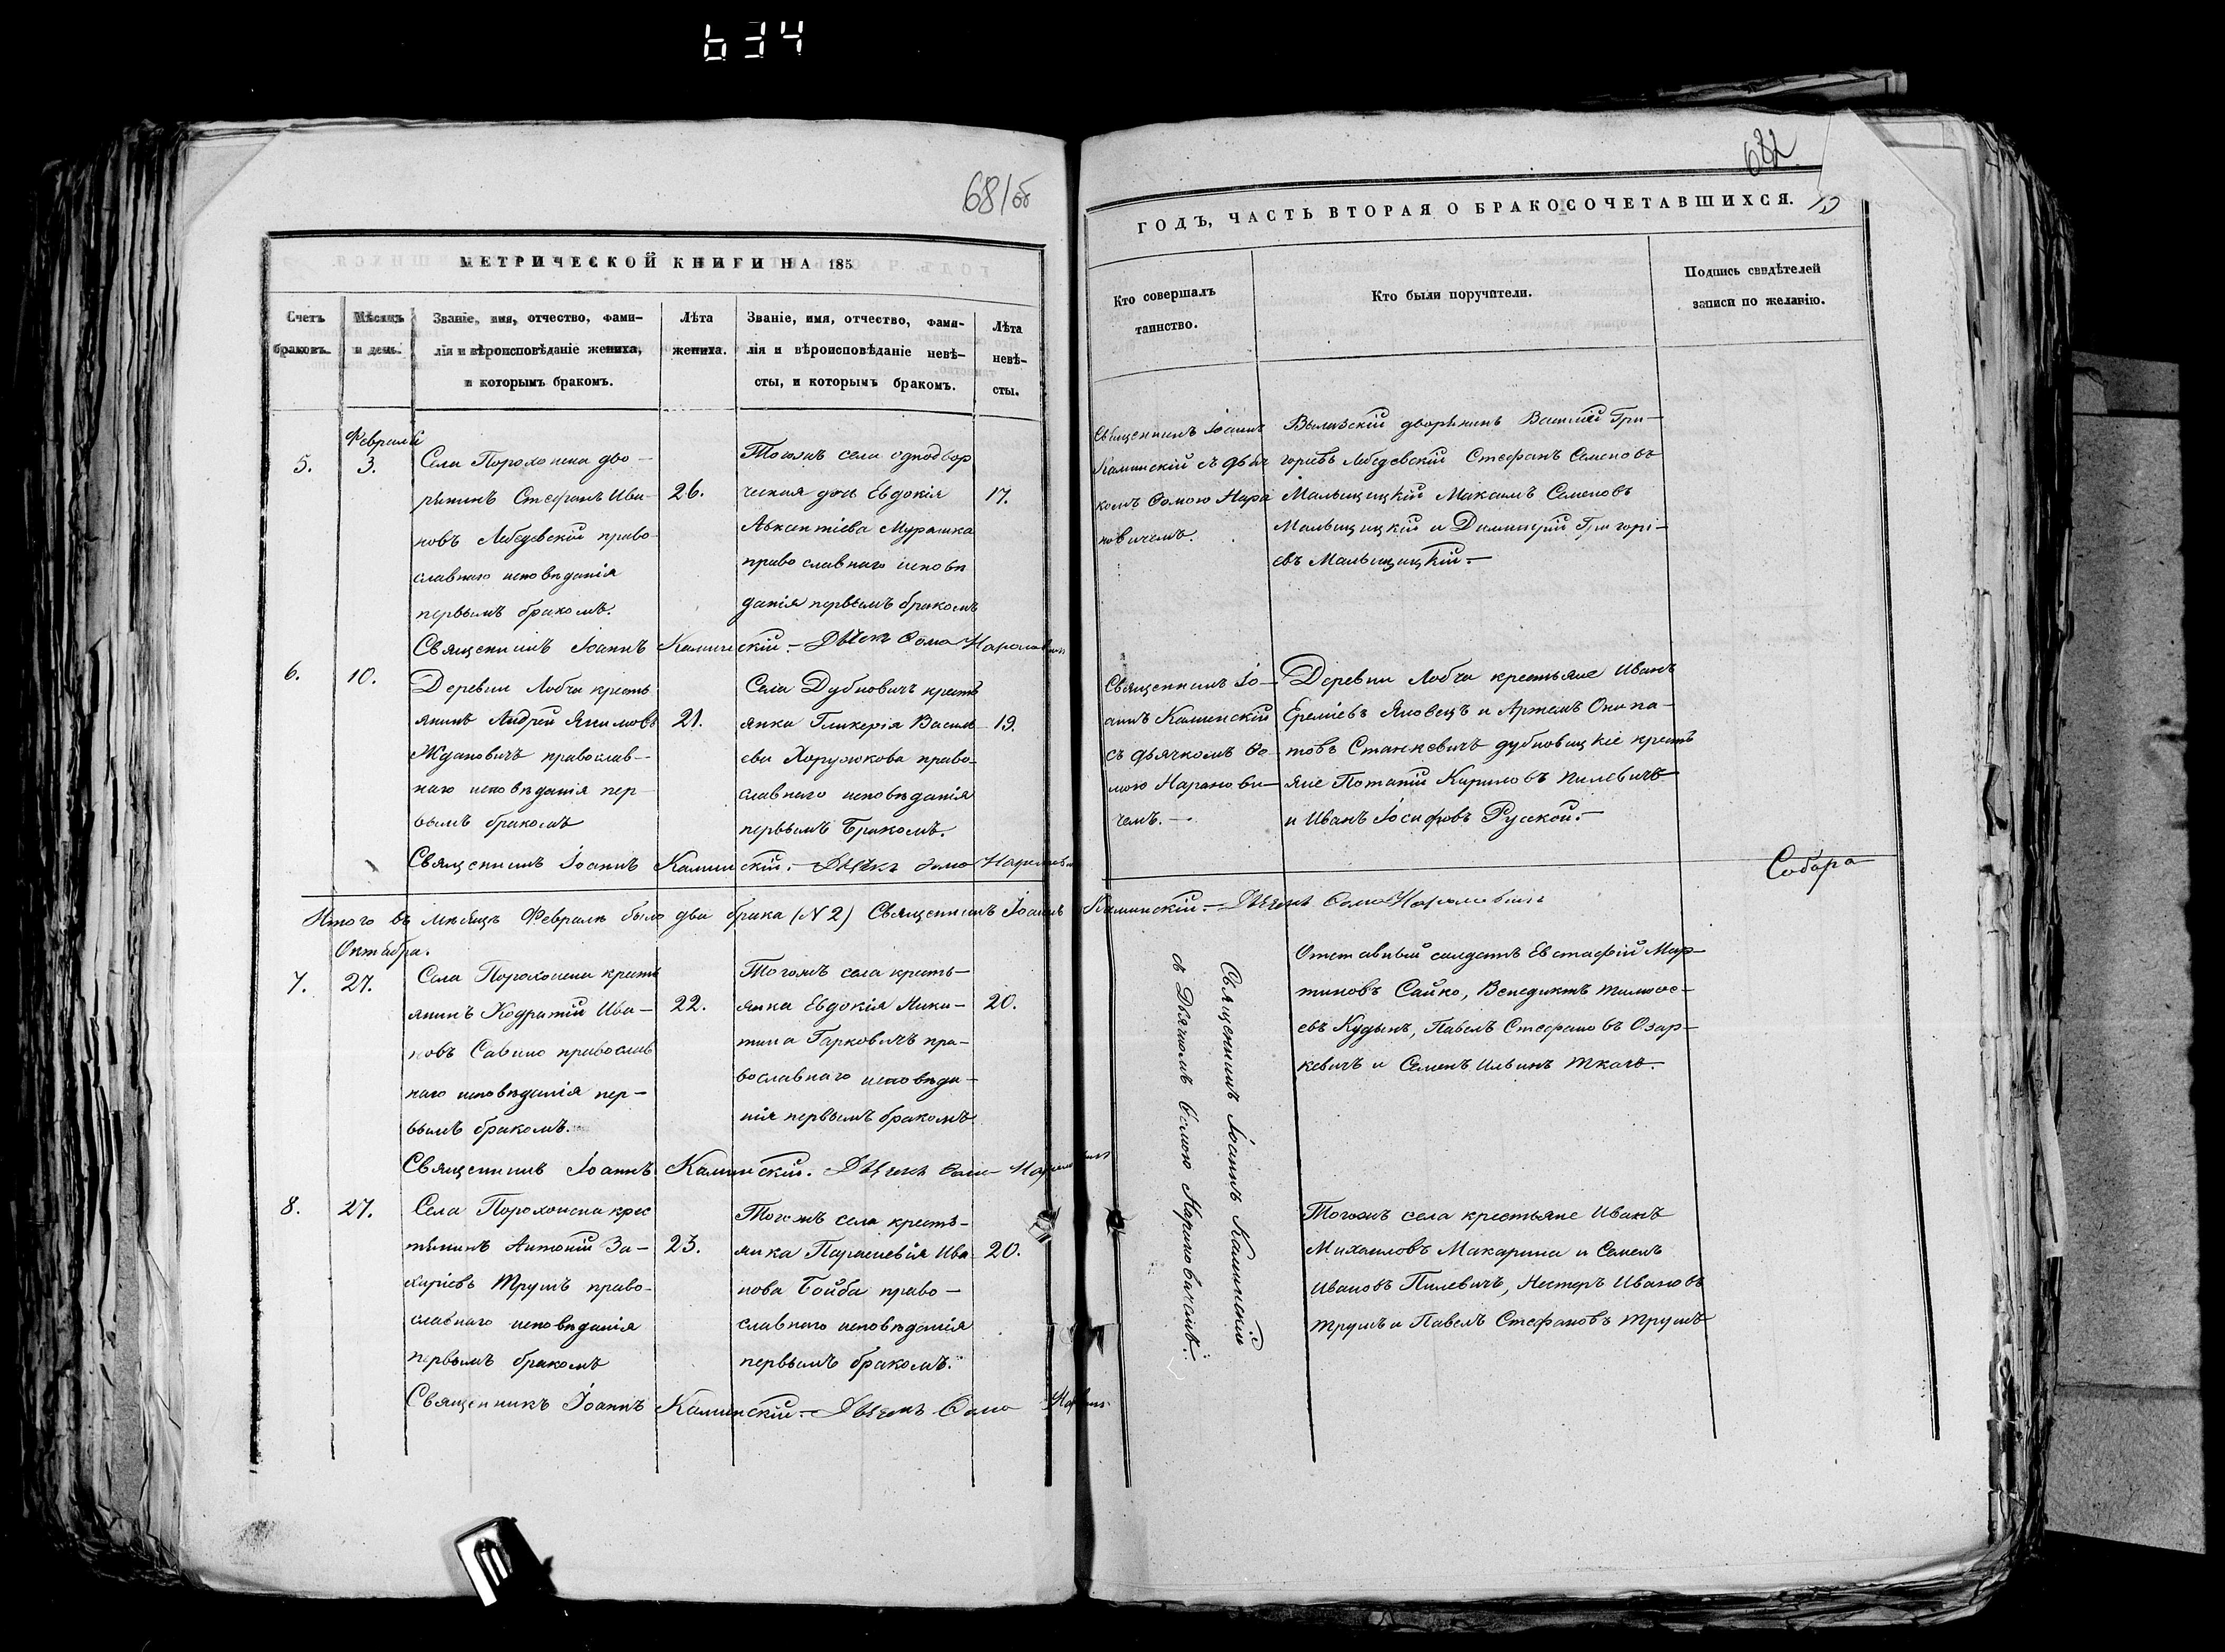 634
681об
МЕТРИЧЕСКОЙ КНИГИ НА 185
Счетъ
браковъ.
Мѣсяцъ
и день.
Званіе, имя, отчество, фами-
лія и вѣроисповѣданіе жениха,
и которымъ бракомъ.
Лѣта
жениха.
Званіе, имя, отчество, фами-
лія и вѣроисповѣданіе невѣ-
сты, и которымъ бракомъ.
Лѣта
невѣ-
сты.
Февраля
5.
3.
Села Порохонска дво-
рянинъ Стефанъ Ива-
новъ Лебедевскій право-
славнаго исповѣданія
первымъ бракомъ.
26.
Тогожъ села однодвор
ческая дочь Евдокія
Авксентіева Мурашка
православнаго исповѣ
данія первымъ бракомъ
17.
Священникъ Іоаннъ Каминскій.- Дьячекъ Ѳома
6.
10.
Деревни Лобча кресть
янинъ Андрей Якимовъ
Ждановичъ православ-
наго исповѣданія пер-
вымъ бракомъ
21.
Села Дубновичъ кресть
янка Гликерія Василь
ева Хоружкова право-
славнаго исповѣданія
первымъ бракомъ.
19.
Священникъ Іоаннъ Каминскій.- Дьячекъ Ѳома
Итого въ мѣсяцѣ Февралѣ было два брака (N 2) Священникъ Іоаннъ
Октября.
7.
27.
Села Порохонска кресть
янинъ Кодратій Ива-
новъ Савино православ
наго исповѣданія пер-
вымъ бракомъ.
22.
Тогожъ села кресть-
янка Евдокія Ники-
тина Гарковичъ пра-
вославнаго исповѣда-
нія первымъ бракомъ
20.
Священникъ Іоаннъ Каминскій. Дьячекъ Ѳома
8.
27.
Села Порохонска крес
тянинъ Антоній За-
харіевъ Трушъ право-
славнаго исповѣданія
первымъ бракомъ
23.
Тогожъ села кресть-
янка Параскевія Ива-
нова Бойба право-
славнаго исповѣданія
первымъ бракомъ.
20.
Священникъ Іоаннъ Каминскій.- Дьячекъ Ѳома
682
ГОДЪ, ЧАСТЬ ВТОРАЯ О БРАКОСОЧЕТАВШИХСЯ.
Кто совершалъ
таинство.
Кто были поручители.
Подпись свидѣтелей
записи по желанію.
Священникъ Іоаннъ
Каминскій съ дьяч
комъ Ѳомою Нара
новичемъ.
дворянинъ Василій Гри-
горіевъ Лебедевскій Стефанъ Семеновъ
Мальщицкій Максимъ Семеновъ
Мальщицкій и Димитрій Григорі-
евъ Мальщицкій.-
Священникъ Іо-
аннъ Каминскій
съ дьячкомъ Ѳо-
мою Наранови-
чемъ.-
Деревни Лобча крестьяне Иванъ
Ереміевъ Яковецъ и Артемъ
Станкевичъ дубновицкіе кресть
яне Потапій Кириловъ Пилевичъ
и Иванъ Іосифовъ Русской.-
Собора
Каминскій.- Дьячекъ Ѳома Нарановичъ
Священникъ Іоаннъ Каминскій
съ Дьячкомъ Ѳомою Нарановичемъ.
Отставный солдатъ Евстафій Мар-
тиновъ Сайко, Венедиктъ Тимоѳе-
евъ Кудынъ, Павелъ Стефановъ Озар-
кевичъ и Семенъ Ильинъ Ткачъ.
Тогожъ села крестьяне Иванъ
Михаиловъ Макарина и Семенъ
Ивановъ Пилевичъ, Нестеръ Ивановъ
Трушъ и Павелъ Стефановъ Трушъ